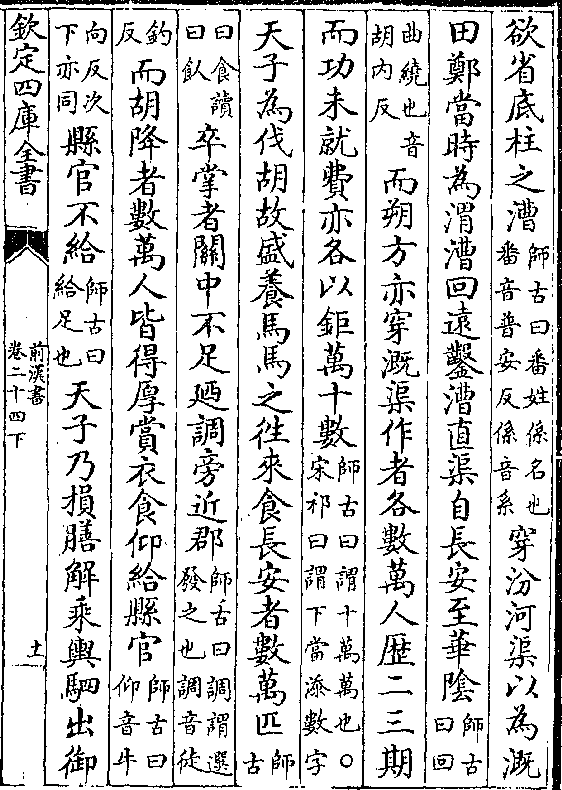 欲省底柱之漕師古曰番姓係名也番音普安反係音系穿汾河渠以為溉
田鄭當時為渭漕回遠鑿漕直渠自長安至華隂師古曰回
曲繞也音胡内反而朔方亦穿溉渠作者各數萬人歴二三期
而功未就費亦各以鉅萬十數師古曰謂十萬萬也○宋祁曰謂下當添數字
天子為伐胡故盛養馬馬之徃來食長安者數萬匹師古
曰食讀曰飤卒掌者關中不足廼調旁近郡師古曰調謂選發之也調音徒
釣反而胡降者數萬人皆得厚賞衣食仰給縣官師古曰仰音牛
向反次下亦同縣官不給師古曰給足也天子乃損膳解乘輿駟出御
欽定四庫全書
前漢書
卷二十四下
十一